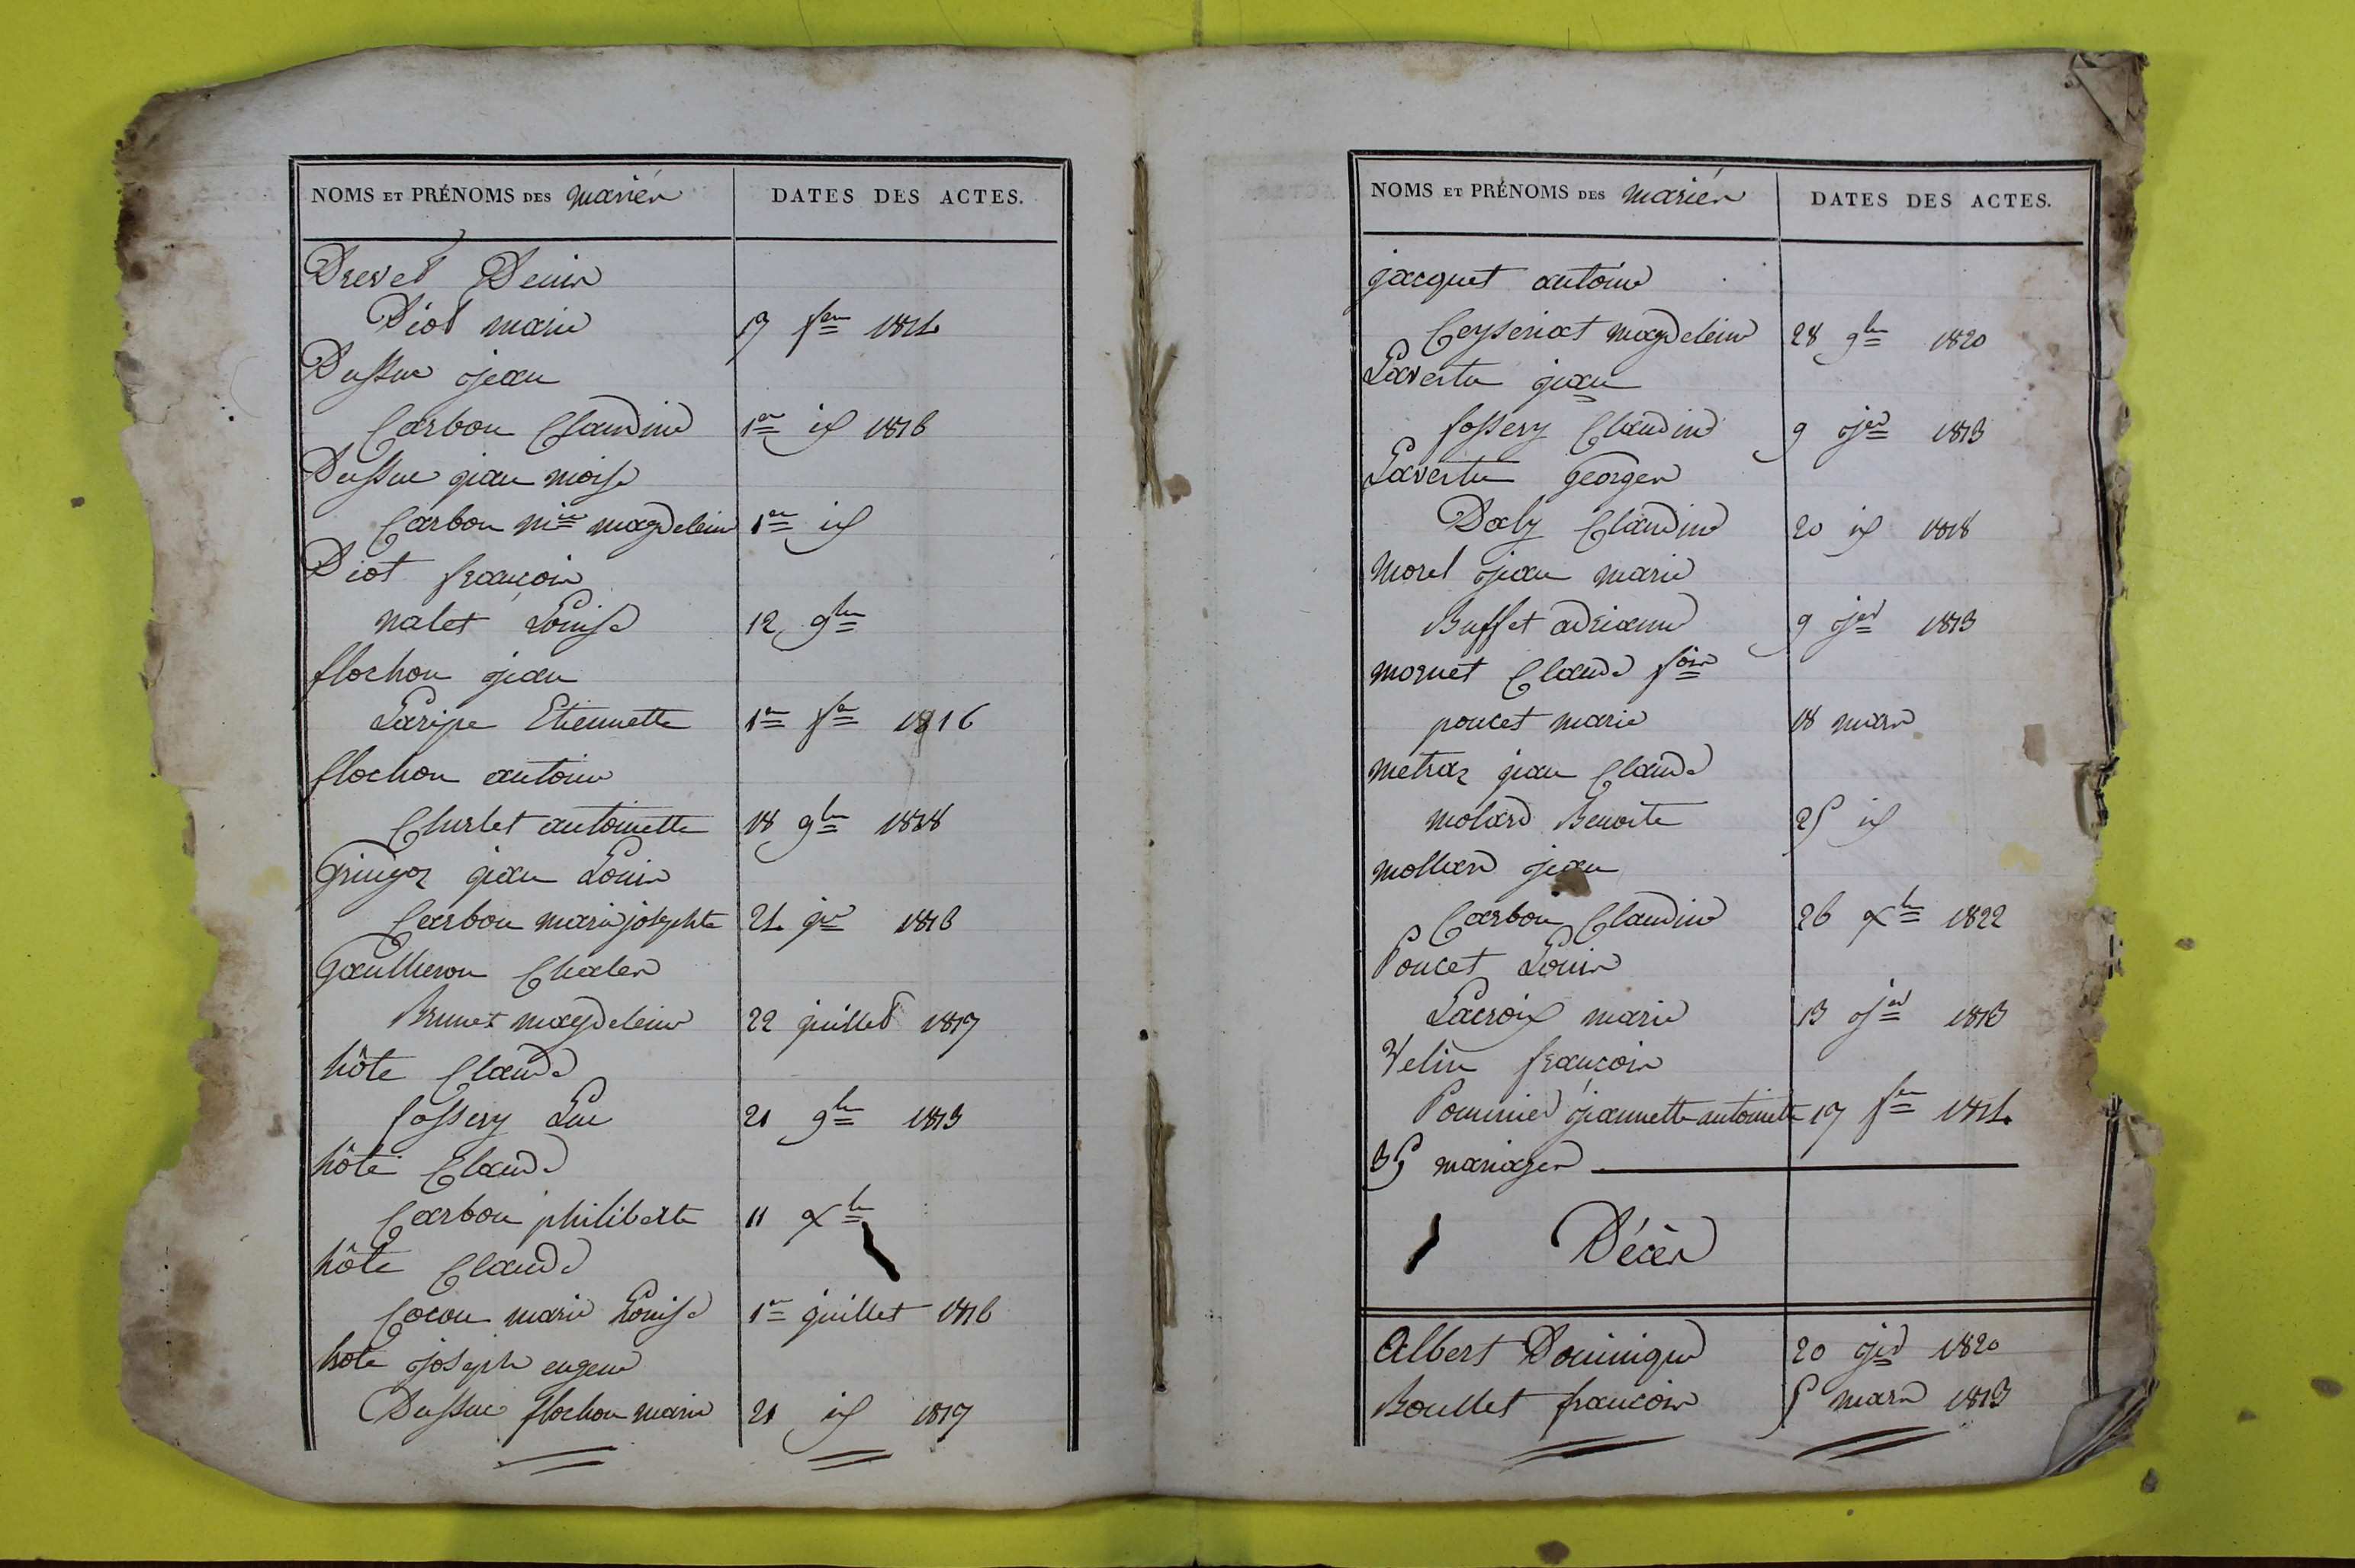 NOMS ET PRÉNOMS DES mariés DATES DES ACTES.
Drevet Denis
Diot marie 17 fer 1814
Dussuc jean
Carbon Claudine 1er id 1816
Dussuc jean moise
Carbon mie magdeleine 1er id
Diot françois
nalet Louise 12 9bre
flochon jean
Laripe Etiennette 1er fer 1816
flochon antoine
Churlet antoinette 18 9bre 1818
Gringoz jean Louis
Carbon marie josephte 24 jer 1816
Gaultheron Chales
Brunet magdeleine 22 juillet 1817
hôte Claude
fossery Luc 21 9bre 1813
hôte Claude
Carbon philiberte 11 xbre
hôte Claude
Cocou marie Louise 1er juillet 1816
hote joseph eugene
Dussuc flochon marie 21 id 1817
NOMS ET PRÉNOMS DES mariés DATES DES ACTES.
jacquet antoine
Ceyseriat magdeleine 28 9bre 1820
Lavertu jean
fossery Claudine 9 jer 1813
Lavertu georges
Daly Claudine 20 id 1818
morel jean marie
Buffet adrianne 9 jer 1813
mornet Claude fois
poncet marie 18 mars
metraz jean Claude
molard Benoite 25 id
mollard jean
Carbon Claudine 26 xbre 1822
Poncet Louis
Lacroix marie 13 jer 1813
Velin françois
Pommier jeannette antoinette 17 fer 1814
35 mariages
Décès
Albert Dominique 20 jer 1820
Boullet françois 5 mars 1813